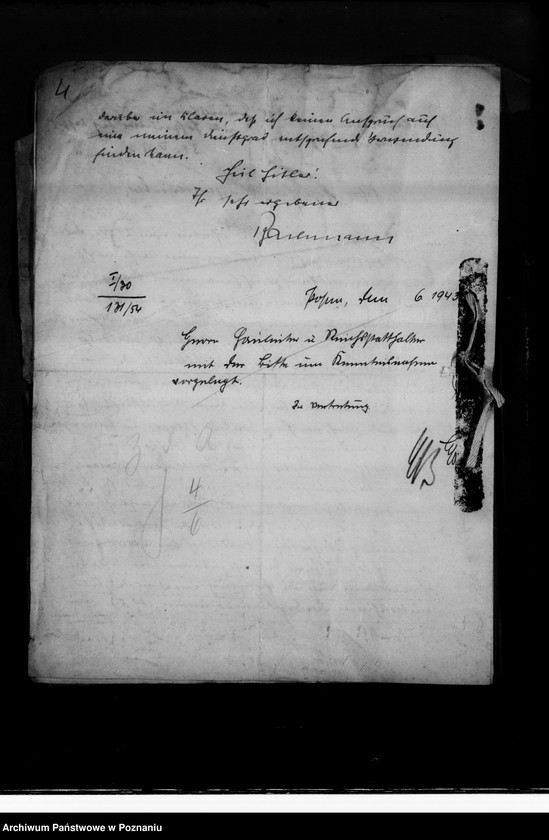 4
darüber im Klaren, daß ich keinen Anspruch auf
eine meinem Dienstgrad entsprechende Verwendung
finden kann.
Heil Hitler!
Ihr sehr ergebener
I/30
131/54
Posen, den 6 1943
Herrn Gauleiter u Reichsstatthalter
mit der Bitte um Kenntnisnahme
vorgelegt.
In Vertretung
z d A
4
6
Archiwum Państwowe w Poznaniu